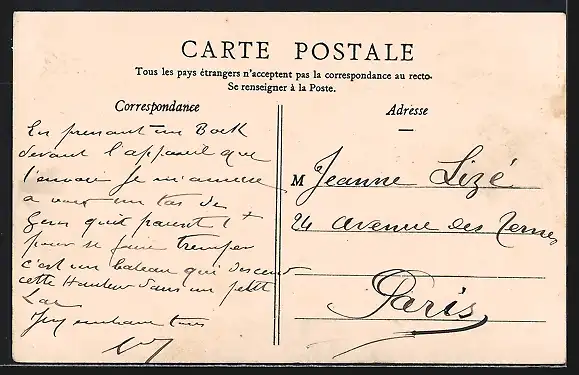 CARTE POSTALE
Tous les pays étrangers n'acceptent pas la correspondance au recto.
Se renseigner à la Poste.
Correspondance
Adresse
En prenant un Bock
devant l'appareil que
t'envoie je m'amuse
a voir un tas de
Gens qui paient 1
pour se faire tremper
c'est un bateau qui descend
cette Hauteur dans un petit
Lac
J'y embrasse tous
M Jeanne Lizé
24 avenue des Ternes
Paris